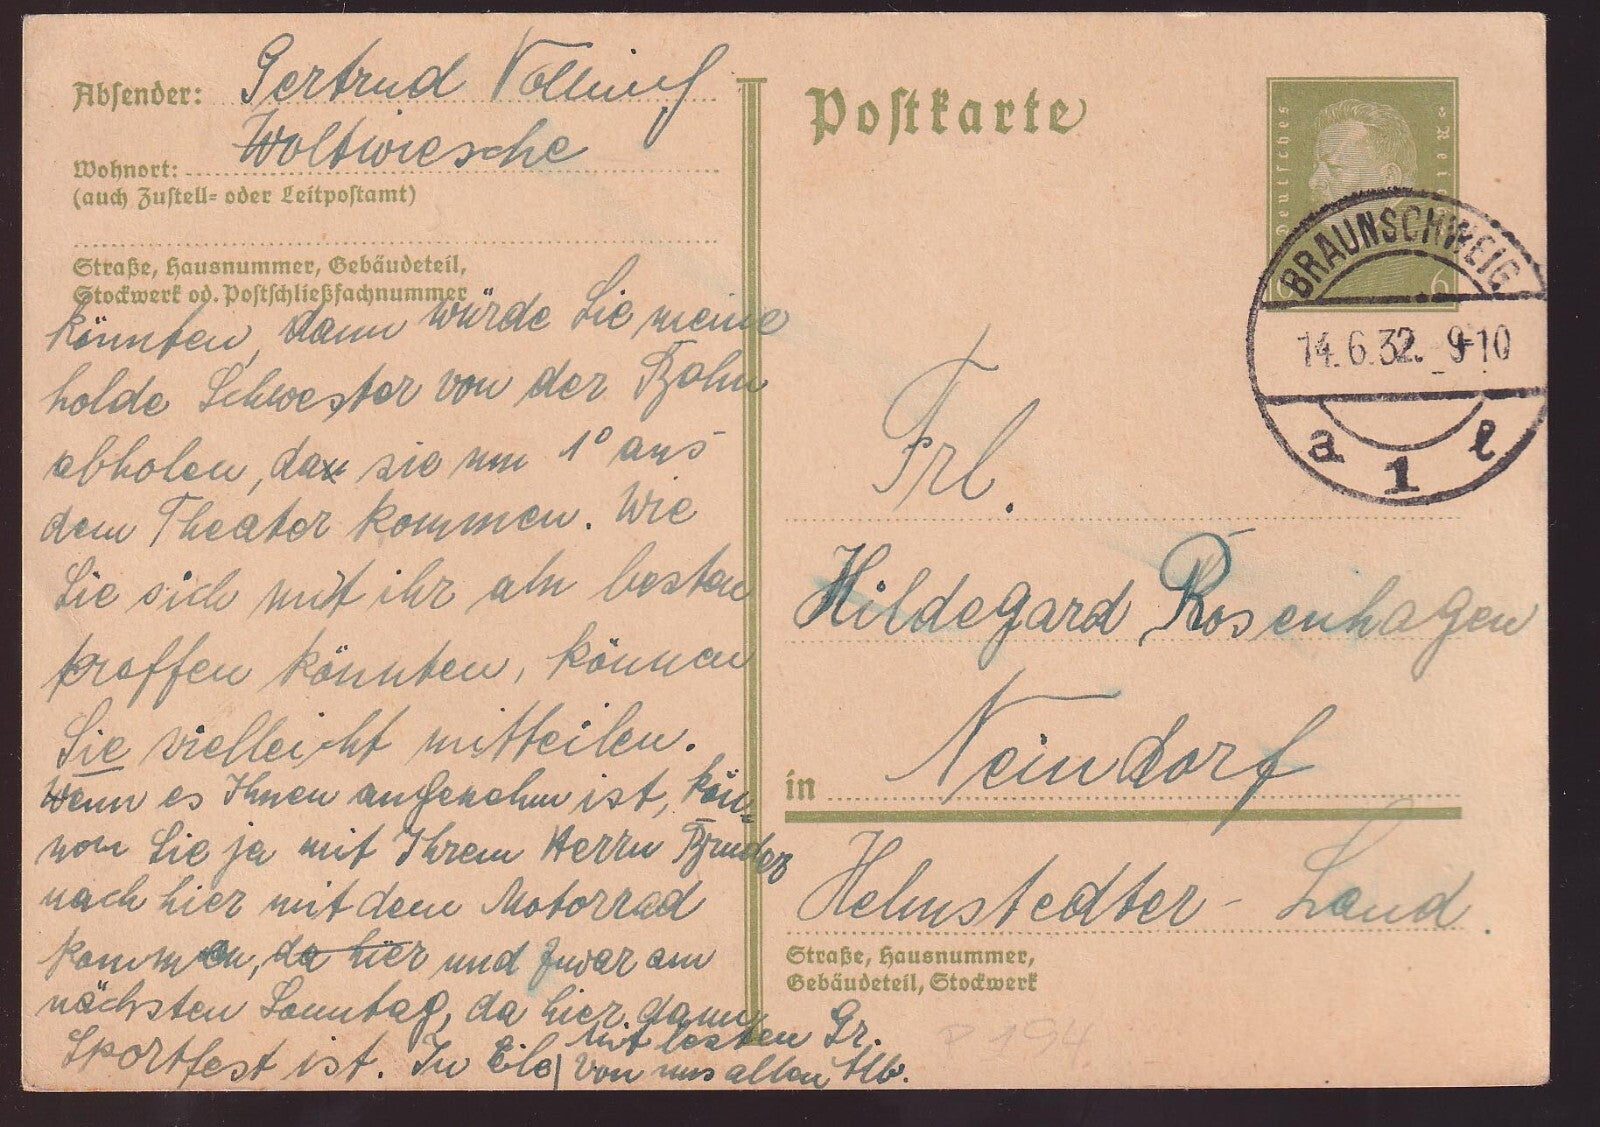 Absender: Gertrud
Woltwiesche
Wohnort:
(auch Zustell- oder Leitpostamt)
Straße, Hausnummer, Gebäudeteil,
Stockwerk od. Postschließfachnummer
könnten, dann würde Sie meine
holde Schwester von der Bahn
abholen, da sie um 1⁰ aus
dem Theater kommen. Wie
Sie sich mit ihr am besten
treffen könnten, können
Sie vielleicht mitteilen.
Wenn es Ihnen angenehm ist, kön-
nen Sie ja mit Ihrem Herrn Bruder
nach hier mit dem Motorrad
kommen, da hier und zwar am
nächsten Sonntag, da hier dann
Sportfest ist. In Eile
Mit besten Gr.
von uns allen Ihre
Postkarte
Deutsches Reich
6 6
BRAUNSCHWEIG
14.6.32. 9-10
a 1 l
Frl.
Hildegard Rosenhagen
in Neindorf
Helmstedter-Land.
Straße, Hausnummer,
Gebäudeteil, Stockwerk
P 194